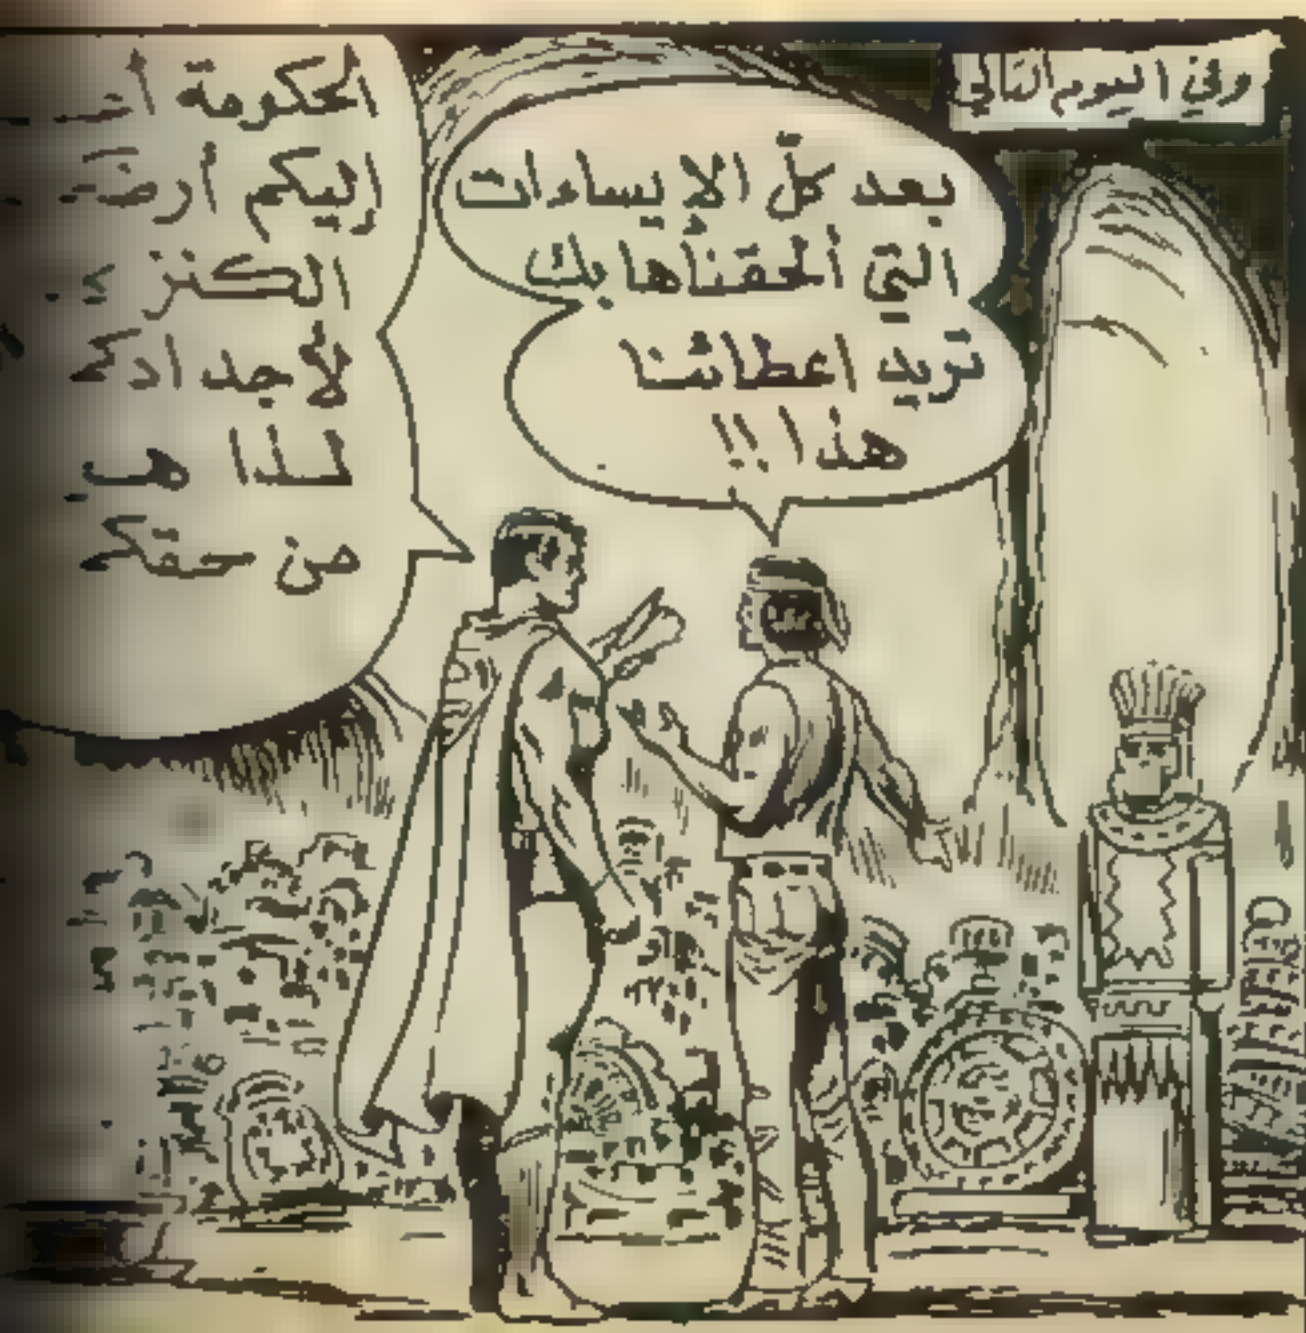 وفي اليوم التالي
بعد كلّ الإيساءات
التي ألحقناها بك
تريد اعطائنا
هذا!!
ألحكومة
إليكم
الكنز
لأجدادكم
لذا
من حقكم